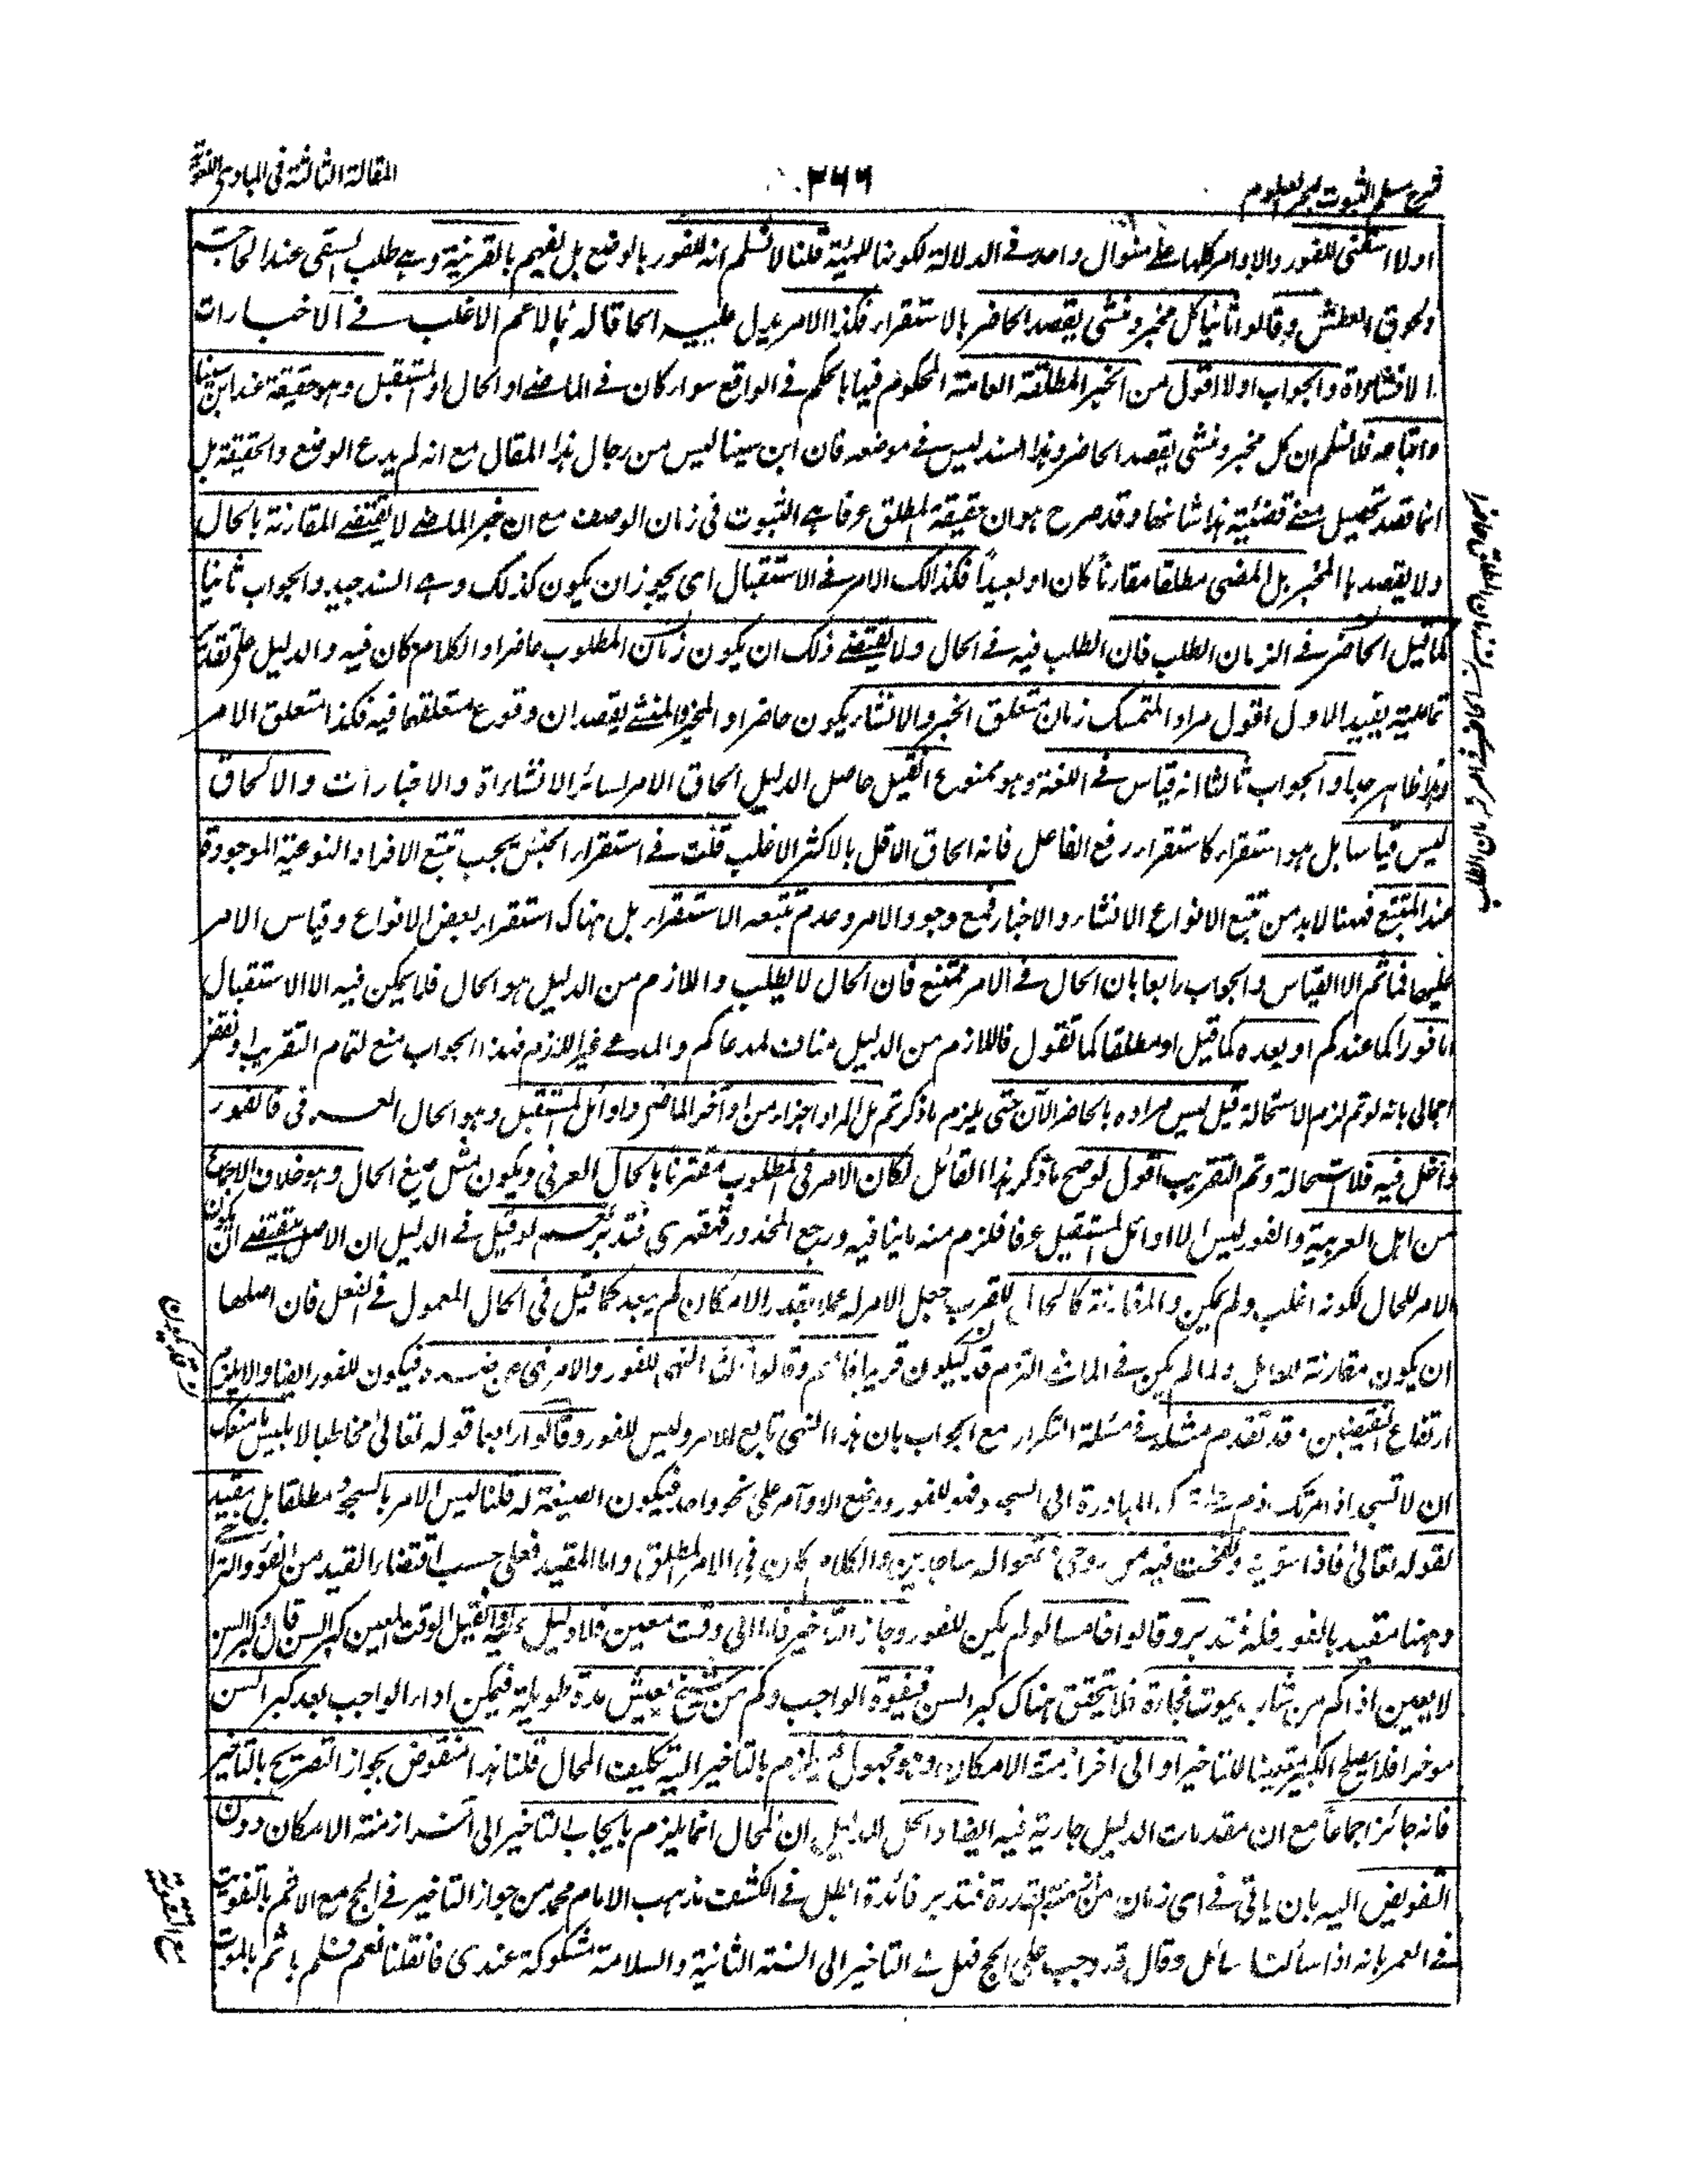 شرح مسلم الثبوت لبحر العلوم
٣٦٦
المقالة الثالثة فى المبادى اللغوية
اولا اسقنى للفور والاوامر كلها على منوال واحد فى الدلالة لكونها للهيئة قلنا لا نسلم انه للفور بالوضع بل يفهم بالقرينة وهى طلب السقى عند الحاجة
ولحوق العطش وقالوا ثانيا كل مخبر ومنشى يقصد الحاضر بالاستقراء فكذا الامر يدل عليه الحاقا له بالاعم الاغلب فى الاخبارات
والانشاءات والجواب اولا اقول من الخبر المطلقة العامة المحكوم فيها بالحكم فى الواقع سواء كان فى الماضى او الحال او المستقبل وهو حقيقة عند ابن سينا
واتباعه فلا نسلم ان كل مخبر ومنشى يقصد الحاضر وهذا السند ليس فى موضعه فان ابن سينا ليس من رجال هذا المقال مع انه لم يدع الوضع والحقيقة بل
انما قصد تحصيل معنى قضية هذا شانها وقد صرح هو ان حقيقة المطلق عرفا هى الثبوت فى زمان الوصف مع ان خبر الماضى لا يقتضى المقارنة بالحال
ولا يقصدها المخبر بل المضى مطلقا مقارنا كان او بعيدا فكذالك الامر فى الاستقبال اى يجوز ان يكون كذلك وهى السند جيد والجواب ثانيا
كما قيل الحاضر فى الزمان الطلب فان الطلب فيه فى الحال ولا يقتضى ذلك ان يكون زمان المطلوب حاضرا والكلام كان فيه والدليل على تقدير
تماميته يفيد الاول اقول مراد المتمسك زمان متعلق الخبر والانشاء يكون حاضرا والمخبر والمنشى يقصدان وقوع متعلقهما فيه فكذا متعلق الامر
وهذا ظاهر جدا والجواب ثالثا انه قياس فى اللغة وهو ممنوع القيل حاصل الدليل الحاق الامر لسائر الانشاءاة والاخبارات والالحاق
ليس قياسا بل هو استقراء كاستقراء رفع الفاعل فانه الحاق الاقل بالاكثر الاغلب قلت فى استقراء الجنس يجب تتبع الافراد النوعية الموجودة
عند المتتبع فههنا لابد من تتبع الانواع الانشاء والاخبار فمع وجود الامر وعدم تتبعه الاستقراء بل هناك استقراء بعض الانواع وقياس الامر
عليها فما ثم الا القياس والجواب رابعا بان الحال فى الامر ممتنع فان الحال لا يطلب واللازم من الدليل هو الحال فلا يمكن فيه الا الاستقبال
اما فورا كما عندكم او بعده كما قيل او مطلقا كما نقول فاللازم من الدليل مناف لمدعاكم والمدعى غير اللازم فهذا الجواب منع لتمام التقريب او نقض
اجمالى بانه لو تم لزم الاستحالة قيل ليس مراده بالحاضر الآن حتى يلزم ما ذكرتم بل المراد اجزاء من اواخر الماضى واوائل المستقبل وهو الحال العرفى فالفور
داخل فيه فلا استحالة وتم التقريب اقول لو صح ما ذكر هذا القائل لكان الامر فى المطلوب مقترنا بالحال العرفى ويكون مثل صيغ الحال وهو خلاف الاجماع
من اهل العربية والفور ليس الا اوائل المستقبل عرفا فلزم منه ما ينافيه ورجع المحذور قهقهرى فتدبر نعم لو قيل فى الدليل ان الاصل يقتضى ان يكون
الامر للحال لكونه اغلب ولم يمكن والمقارنة كالحال للقرب جعل الامر له عملا بقدر الامكان لم يبعد كما قيل فى الحال المعمول فى الفعل فان اصلها
ان يكون مقارنة للعامل ولما لم يكن فى الماضى التزم قد ليكون قريبا فافهم وقالوا ثالثا النهى للفور والامر نهى عن ضده فيكون للفور ايضا والا يلزم
ارتفاع النقيضين وقد تقدم مثله فى مسئلة التكرار مع الجواب بان هذا النهى تابع للامر وليس للفور وقالوا رابعا قوله تعالى مخاطبا لابليس ما منعك
ان لا تسجد اذ امرتك ذم على ترك المبادرة الى السجود فهو للفور ووضع الاوآمر على نحو واحد فيكون الصيغة له قلنا ليس الامر بالسجود مطلقا بل مقيد
لقوله تعالى فاذا سويته ونفخت فيه من روحى فقعوا له ساجدين والكلام كان فى الامر المطلق واما المقيد فعلى حسب اقتضاء القيد من الفور والتراخى
وههنا مقيد بالفور فله فتدبر وقالوا خامسا لو لم يكن للفور وجاز التأخير فاما الى وقت معين ولا دليل عليه القيل الوقت المعين كبر السن قال وكبر السن
لا يعين اذ كم من شاب يموت فجاءة فلا يتحقق هناك كبر السن فيفوت الواجب وكم من شيخ يعيش مدة طويلة فيمكن اداء الواجب بعد كبر السن
موخرا فلا يصلح الكبر معينا للتاخير او الى آخر ازمنة الامكان وهو مجهول فيلزم بالتاخير اليه تكليف المحال قلنا هذا منقوض بجواز التصريح بالتأخير
فانه جائز اجماعا مع ان مقدمات الدليل جارية فيه ايضا والحل للدليل ان المحال انما يلزم بايجاب التاخير الى آخر ازمنة الامكان دون
التفويض اليه بان ياتى فى اى زمان من ازمنة القدرة فتدبر فائدة ابطل فى الكشف مذهب الامام محمد من جواز التاخير فى الحج مع الاثم بالتفويت
فى العمر بانه اذا سألنا سائل وقال قد وجب على الحج فهل لى التاخير الى السنة الثانية والسلامة مشكوكة عندى فان قلنا نعم فلم ياثم بالموت